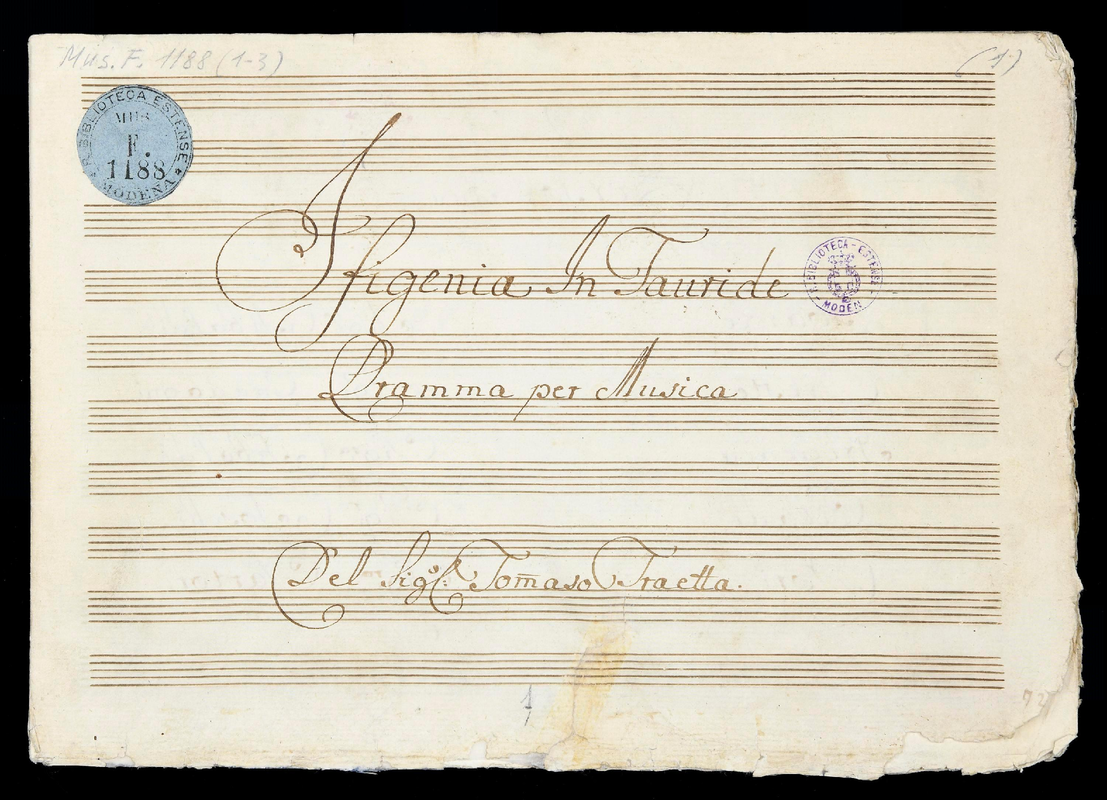 Mus. F. 1188 (1-3)
(1)
R. BIBLIOTECA ESTENSE
MUS.
F.
1188
MODENA
Ifigenia In Tauride
R. BIBLIOTECA - ESTENSE -
MODEN
Dramma per Musica
Del Sig.r Tom̄aso Traetta.
1
72